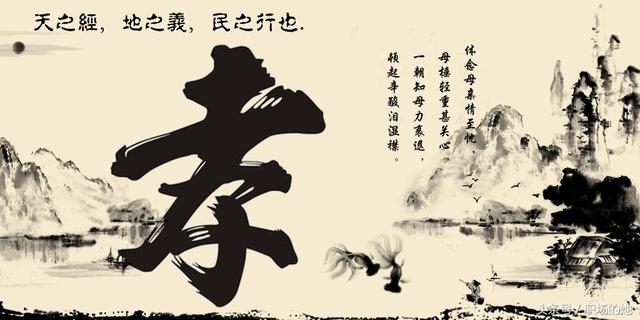 天之經，地之義，民之行也.
孝
体念母亲情至忱，
母棰轻重甚关心，
一朝知母力衰退，
顿起辛酸泪湿襟。
头条号 / 职场的她